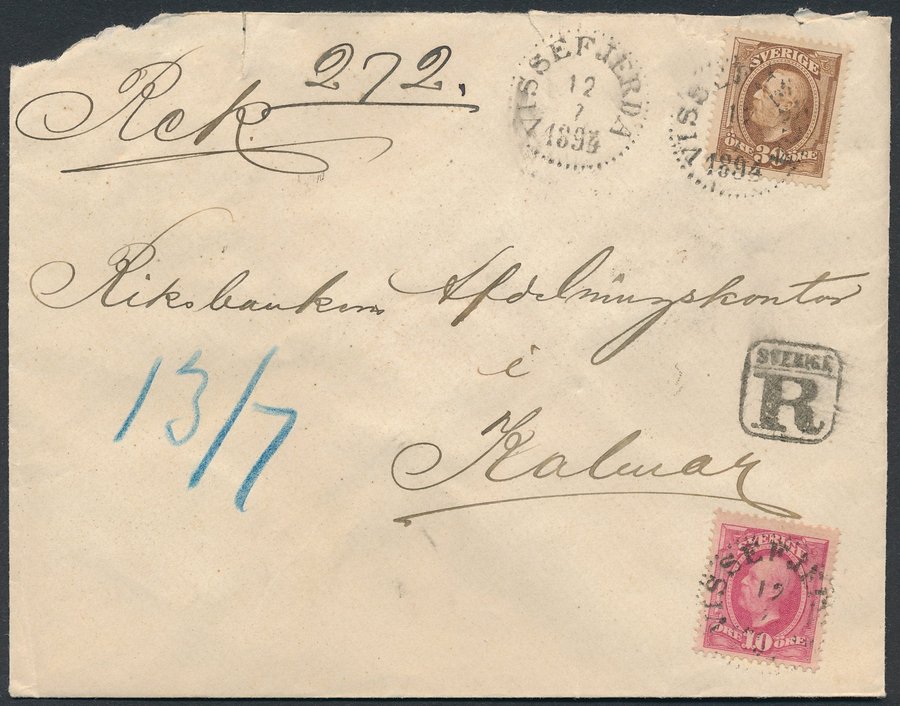 Rek 272.
VISSEFJERDA
12
7
1894
VISSEFJERDA
12
1894
SVERIGE
ÖRE 30 ÖRE
Riksbankens Afdelningskontor
i
Kalmar
13/7
SVERIGE
R
SVERIGE
VISSEFJER
12
ÖRE 10 ÖRE